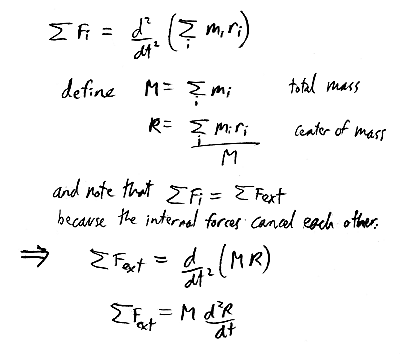 ∑ Fi = d²/dt² (∑i mi ri)
define M = ∑i mi total mass
R = ∑i mi ri / M center of mass
and note that ∑Fi = ∑Fext
because the internal forces cancel each other.
⇒ ∑Fext = d/dt² (MR)
∑Fext = M d²R/dt